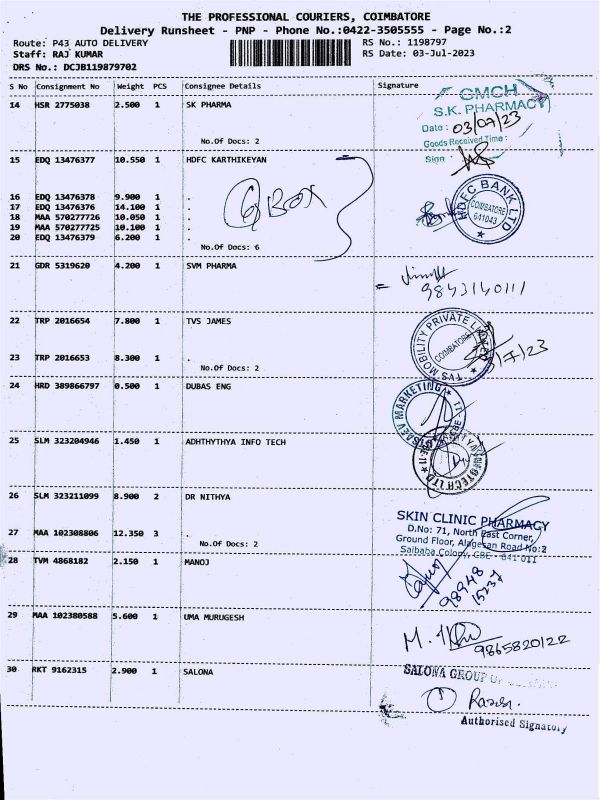 THE PROFESSIONAL COURIERS, COIMBATORE
Delivery Runsheet - PNP - Phone No.:0422-3505555 - Page No.:2
Route: P43 AUTO DELIVERY
Staff: RAJ KUMAR
DRS No.: DCJB119879702
RS No.: 1198797
RS Date: 03-Jul-2023
S No Consignment No Weight PCS Consignee Details Signature
14 HSR 2775038 2.500 1 SK PHARMA
No.Of Docs: 2
GMCH
S.K. PHARMACY
Date : 03/07/23
Goods Received Time :
Sign :
15 EDQ 13476377 10.550 1 HDFC KARTHIKEYAN
16 EDQ 13476378 9.900 1 .
17 EDQ 13476376 14.100 1 .
18 MAA 570277726 10.050 1 .
19 MAA 570277725 10.100 1 .
20 EDQ 13476379 6.200 1 .
No.Of Docs: 6
BOX
HDFC BANK LTD
COIMBATORE
641043
21 GDR 5319620 4.200 1 SVM PHARMA
9843140111
22 TRP 2016654 7.800 1 TVS JAMES
23 TRP 2016653 8.300 1 .
No.Of Docs: 2
TVS MOBILITY PRIVATE
COIMBATORE
3/7/23
24 HRD 389866797 0.500 1 DUBAS ENG
MARKETING
25 SLM 323204946 1.450 1 ADHTHYTHYA INFO TECH
26 SLM 323211099 8.900 2 DR NITHYA
27 MAA 102308806 12.350 3 .
No.Of Docs: 2
SKIN CLINIC PHARMACY
D.No: 71, North East Corner,
Ground Floor, Alagesan Road No:2
Saibaba Colony, CBE - 641 011
28 TVM 4868182 2.150 1 MANOJ
98948
15237
29 MAA 102380588 5.600 1 UMA MURUGESH
9865820122
30 RKT 9162315 2.900 1 SALONA
SALONA GROUP
Authorised Signatory